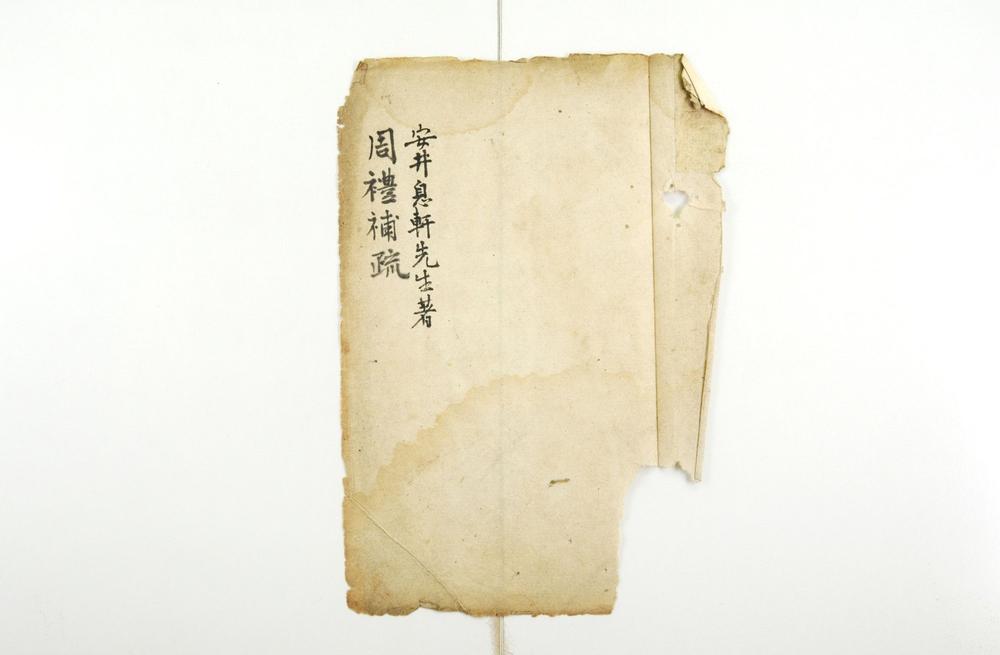 安井息軒先生著
周禮補疏